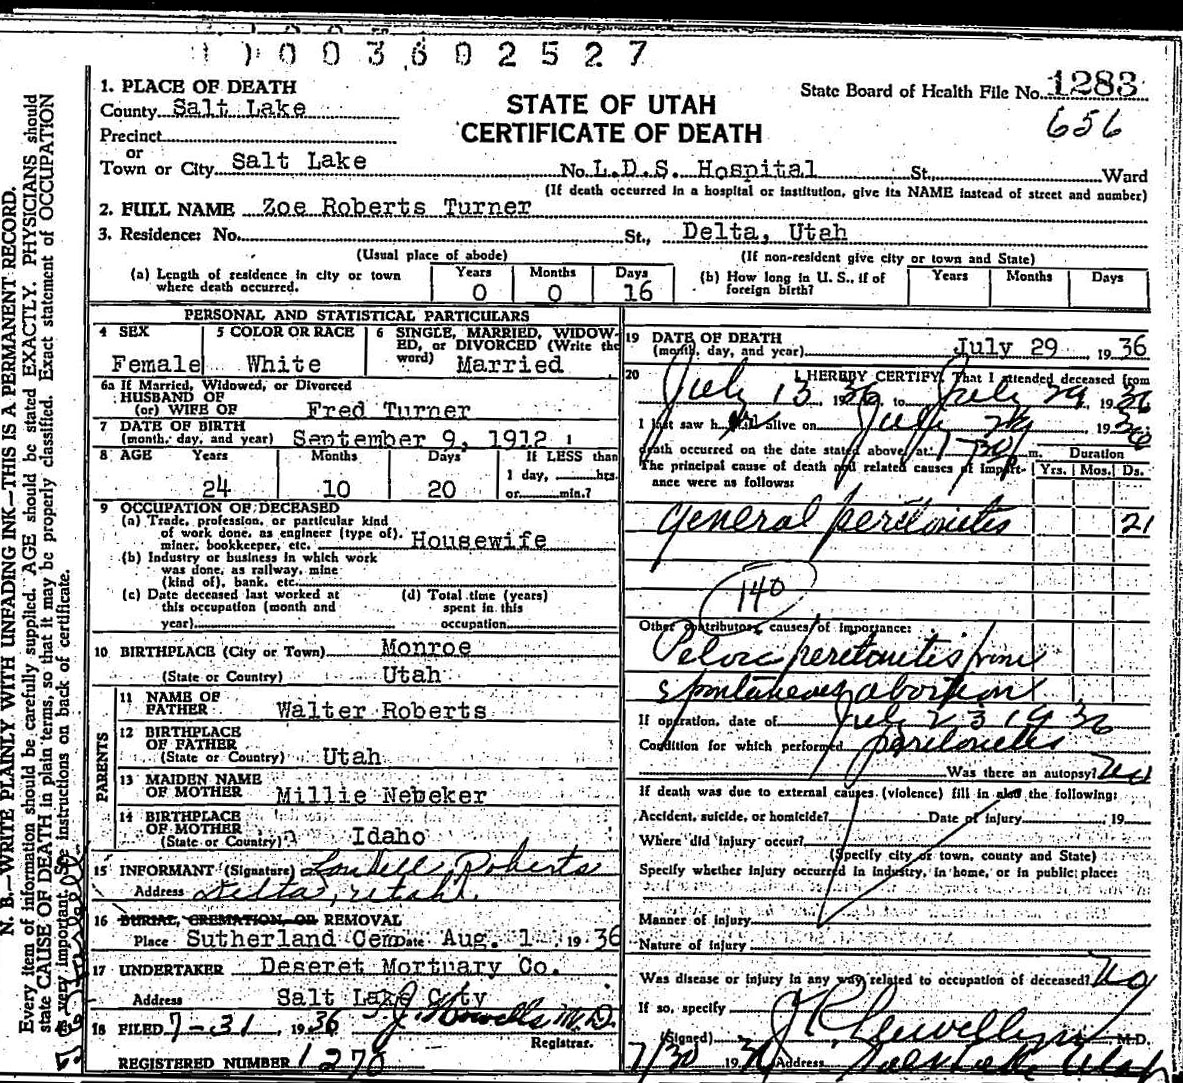 003602527
1. PLACE OF DEATH
County Salt Lake
Precinct
or
Town or City Salt Lake
STATE OF UTAH
CERTIFICATE OF DEATH
State Board of Health File No. 1283
656
No. L.D.S. Hospital St., Ward
(If death occurred in a hospital or institution, give its NAME instead of street and number)
2. FULL NAME Zoe Roberts Turner
3. Residence: No. St., Delta, Utah
(Usual place of abode) (If non-resident give city or town and State)
(a) Length of residence in city or town where death occurred. Years 0 Months 0 Days 16
(b) How long in U. S., if of foreign birth? Years Months Days
PERSONAL AND STATISTICAL PARTICULARS
4 SEX Female
5 COLOR OR RACE White
6 SINGLE, MARRIED, WIDOWED, or DIVORCED (Write the word) Married
6a If Married, Widowed, or Divorced
HUSBAND OF
(or) WIFE OF Fred Turner
7 DATE OF BIRTH
(month, day, and year) September 9, 1912
8 AGE Years 24 Months 10 Days 20 If LESS than 1 day, hrs. or min.?
9 OCCUPATION OF DECEASED
(a) Trade, profession, or particular kind
of work done, as engineer (type of),
miner, bookkeeper, etc. Housewife
(b) Industry or business in which work
was done, as railway, mine
(kind of), bank, etc.
(c) Date deceased last worked at
this occupation (month and
year)
(d) Total time (years)
spent in this
occupation
10 BIRTHPLACE (City or Town) Monroe
(State or Country) Utah
PARENTS
11 NAME OF
FATHER Walter Roberts
12 BIRTHPLACE
OF FATHER
(State or Country) Utah
13 MAIDEN NAME
OF MOTHER Millie Nebeker
14 BIRTHPLACE
OF MOTHER
(State or Country) Idaho
15 INFORMANT (Signature) Roberts
Address Delta, Utah
16 BURIAL, CREMATION, OR REMOVAL
Place Sutherland Cem Date Aug. 1 1936
17 UNDERTAKER Deseret Mortuary Co.
Address Salt Lake City
18 FILED 7-31, 1936 M.D.
Registrar.
REGISTERED NUMBER 1270
19 DATE OF DEATH
(month, day, and year) July 29, 1936
20 I HEREBY CERTIFY, That I attended deceased from
July 13, 1936, to July 29, 1936
I last saw h alive on July 1936
death occurred on the date stated above, at 1-30 m.
Duration
The principal cause of death and related causes of importance were as follows: Yrs. Mos. Ds.
general peritonitis 21
140
Other contributory causes of importance:
Pelvic peritonitis from
spontaneous abortion
If operation, date of July 23 1936
Condition for which performed peritonitis
Was there an autopsy? no
If death was due to external causes (violence) fill in also the following:
Accident, suicide, or homicide? Date of injury 19
Where did injury occur?
(Specify city or town, county and State)
Specify whether injury occurred in industry, in home, or in public place:
Manner of injury
Nature of injury
Was disease or injury in any way related to occupation of deceased? No
If so, specify
(Signed) M.D.
7/30 1936 Address Salt Lake Utah
N. B.—WRITE PLAINLY WITH UNFADING INK—THIS IS A PERMANENT RECORD.
Every item of information should be carefully supplied. AGE should be stated EXACTLY. PHYSICIANS should
state CAUSE OF DEATH in plain terms, so that it may be properly classified. Exact statement of OCCUPATION
very important. See instructions on back of certificate.